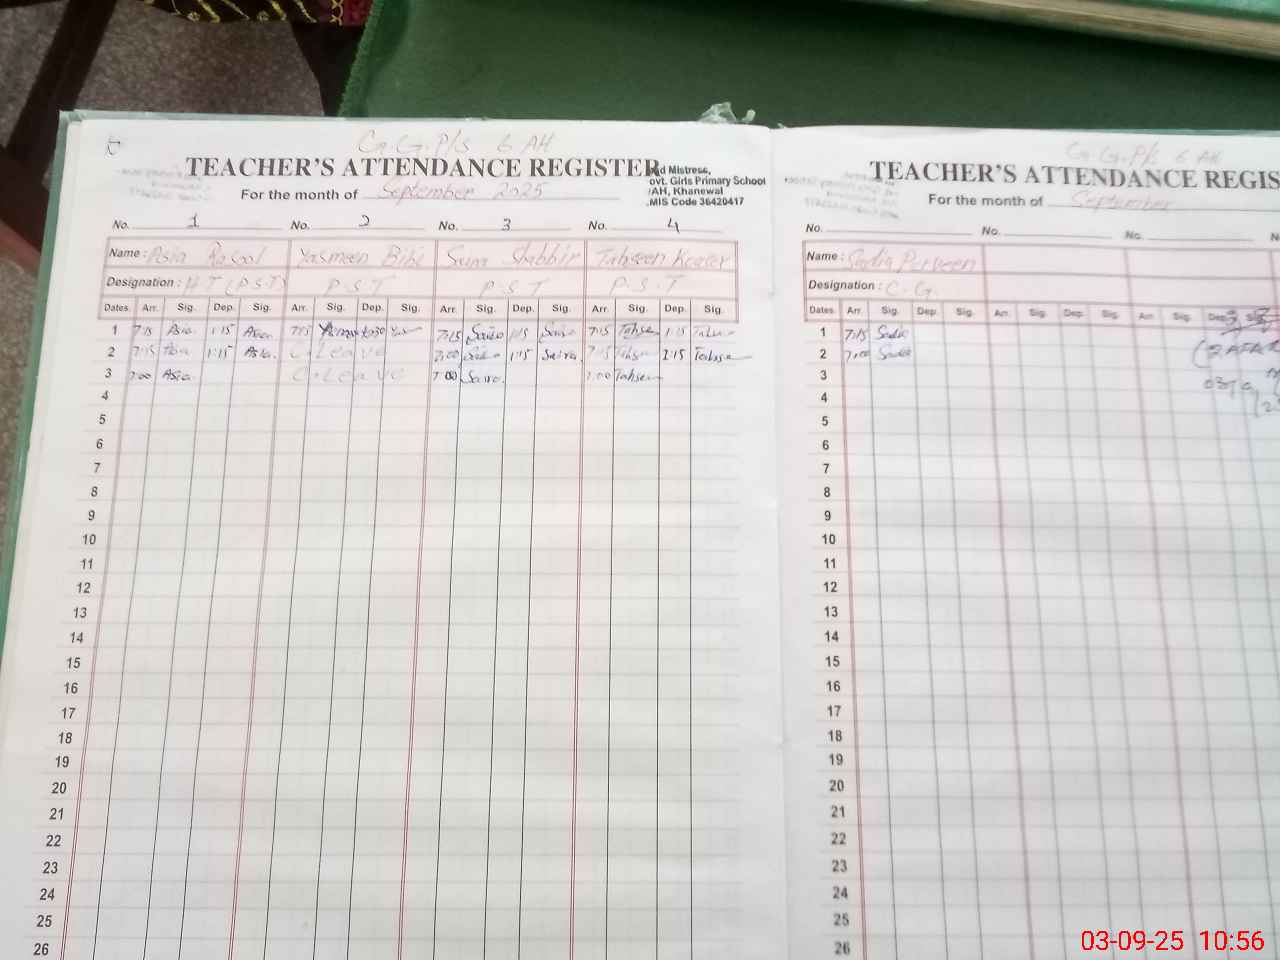 G.G.P/S 6 AH
TEACHER'S ATTENDANCE REGISTER
For the month of September 2025
d Mistress,
ovt. Girls Primary School
/AH, Khanewal
.MIS Code 36420417
No. 1 No. 2 No. 3 No. 4
Name: Asia Rasool Yasmeen Bibi Saira Shabbir Tahseen Kausar
Designation: H T (P.S.T) P.S.T P.S.T P.S.T
Dates Arr. Sig. Dep. Sig. Arr. Sig. Dep. Sig. Arr. Sig. Dep. Sig. Arr. Sig. Dep. Sig.
1 7:15 Asia 1:15 Asia 7:15 7:15 Saira 1:15 Saira 7:15 Tahseen 1:15
2 7:15 Asia 1:15 Asia C-Leave 7:00 Saira 1:15 Saira 7:15 1:15
3 7:00 Asia C-Leave 7:00 Saira 7:00 Tahseen
4
5
6
7
8
9
10
11
12
13
14
15
16
17
18
19
20
21
22
23
24
25
26
G.G.P/S 6 AH
TEACHER'S ATTENDANCE REGIS
For the month of September
No. No. No. N
Name: Sadia Parveen
Designation: C.G.
Dates Arr. Sig. Dep. Sig. Arr. Sig. Dep. Sig. Arr. Sig. Dep. Sig.
1 7:15 Sadia
2 7:00 Sadia
3
4
5
6
7
8
9
10
11
12
13
14
15
16
17
18
19
20
21
22
23
24
25
26
03-09-25 10:56